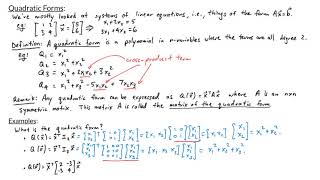 Quadratic Forms:
We've mostly looked at systems of linear equations, i.e., things of the form Ax⃗=b⃗.
eg [1 2; 3 4][x₁; x₂]=[5; 6] x₁+2x₂=5
3x₁+4x₂=6
Definition: A quadratic form is a polynomial in n-variables where the terms are all degree 2.
eg Q₁ = x₁²
Q₂ = x₁²+x₂²
Q₃ = x₁²+2x₁x₂+3x₂² cross-product term
Q₄ = x₁²-5x₁x₂+7x₂x₃
Remark: Any quadratic form can be expressed as Q(x⃗)=x⃗ᵀAx⃗ where A is an n×n
symmetric matrix. This matrix A is called the matrix of the quadratic form
Examples:
What is the quadratic form?
• Q(x⃗)=x⃗ᵀI₂x⃗ = [x₁; x₂]ᵀ[1 0; 0 1][x₁; x₂]=[x₁ x₂][1 0; 0 1][x₁; x₂]=[x₁ x₂][x₁; x₂]=x₁²+x₂².
• Q(x⃗)=x⃗ᵀI₃x⃗ = [x₁; x₂; x₃]ᵀ[1 0 0; 0 1 0; 0 0 1][x₁; x₂; x₃]=[x₁ x₂ x₃][x₁; x₂; x₃]=x₁²+x₂²+x₃².
• Q(x⃗)=x⃗ᵀ